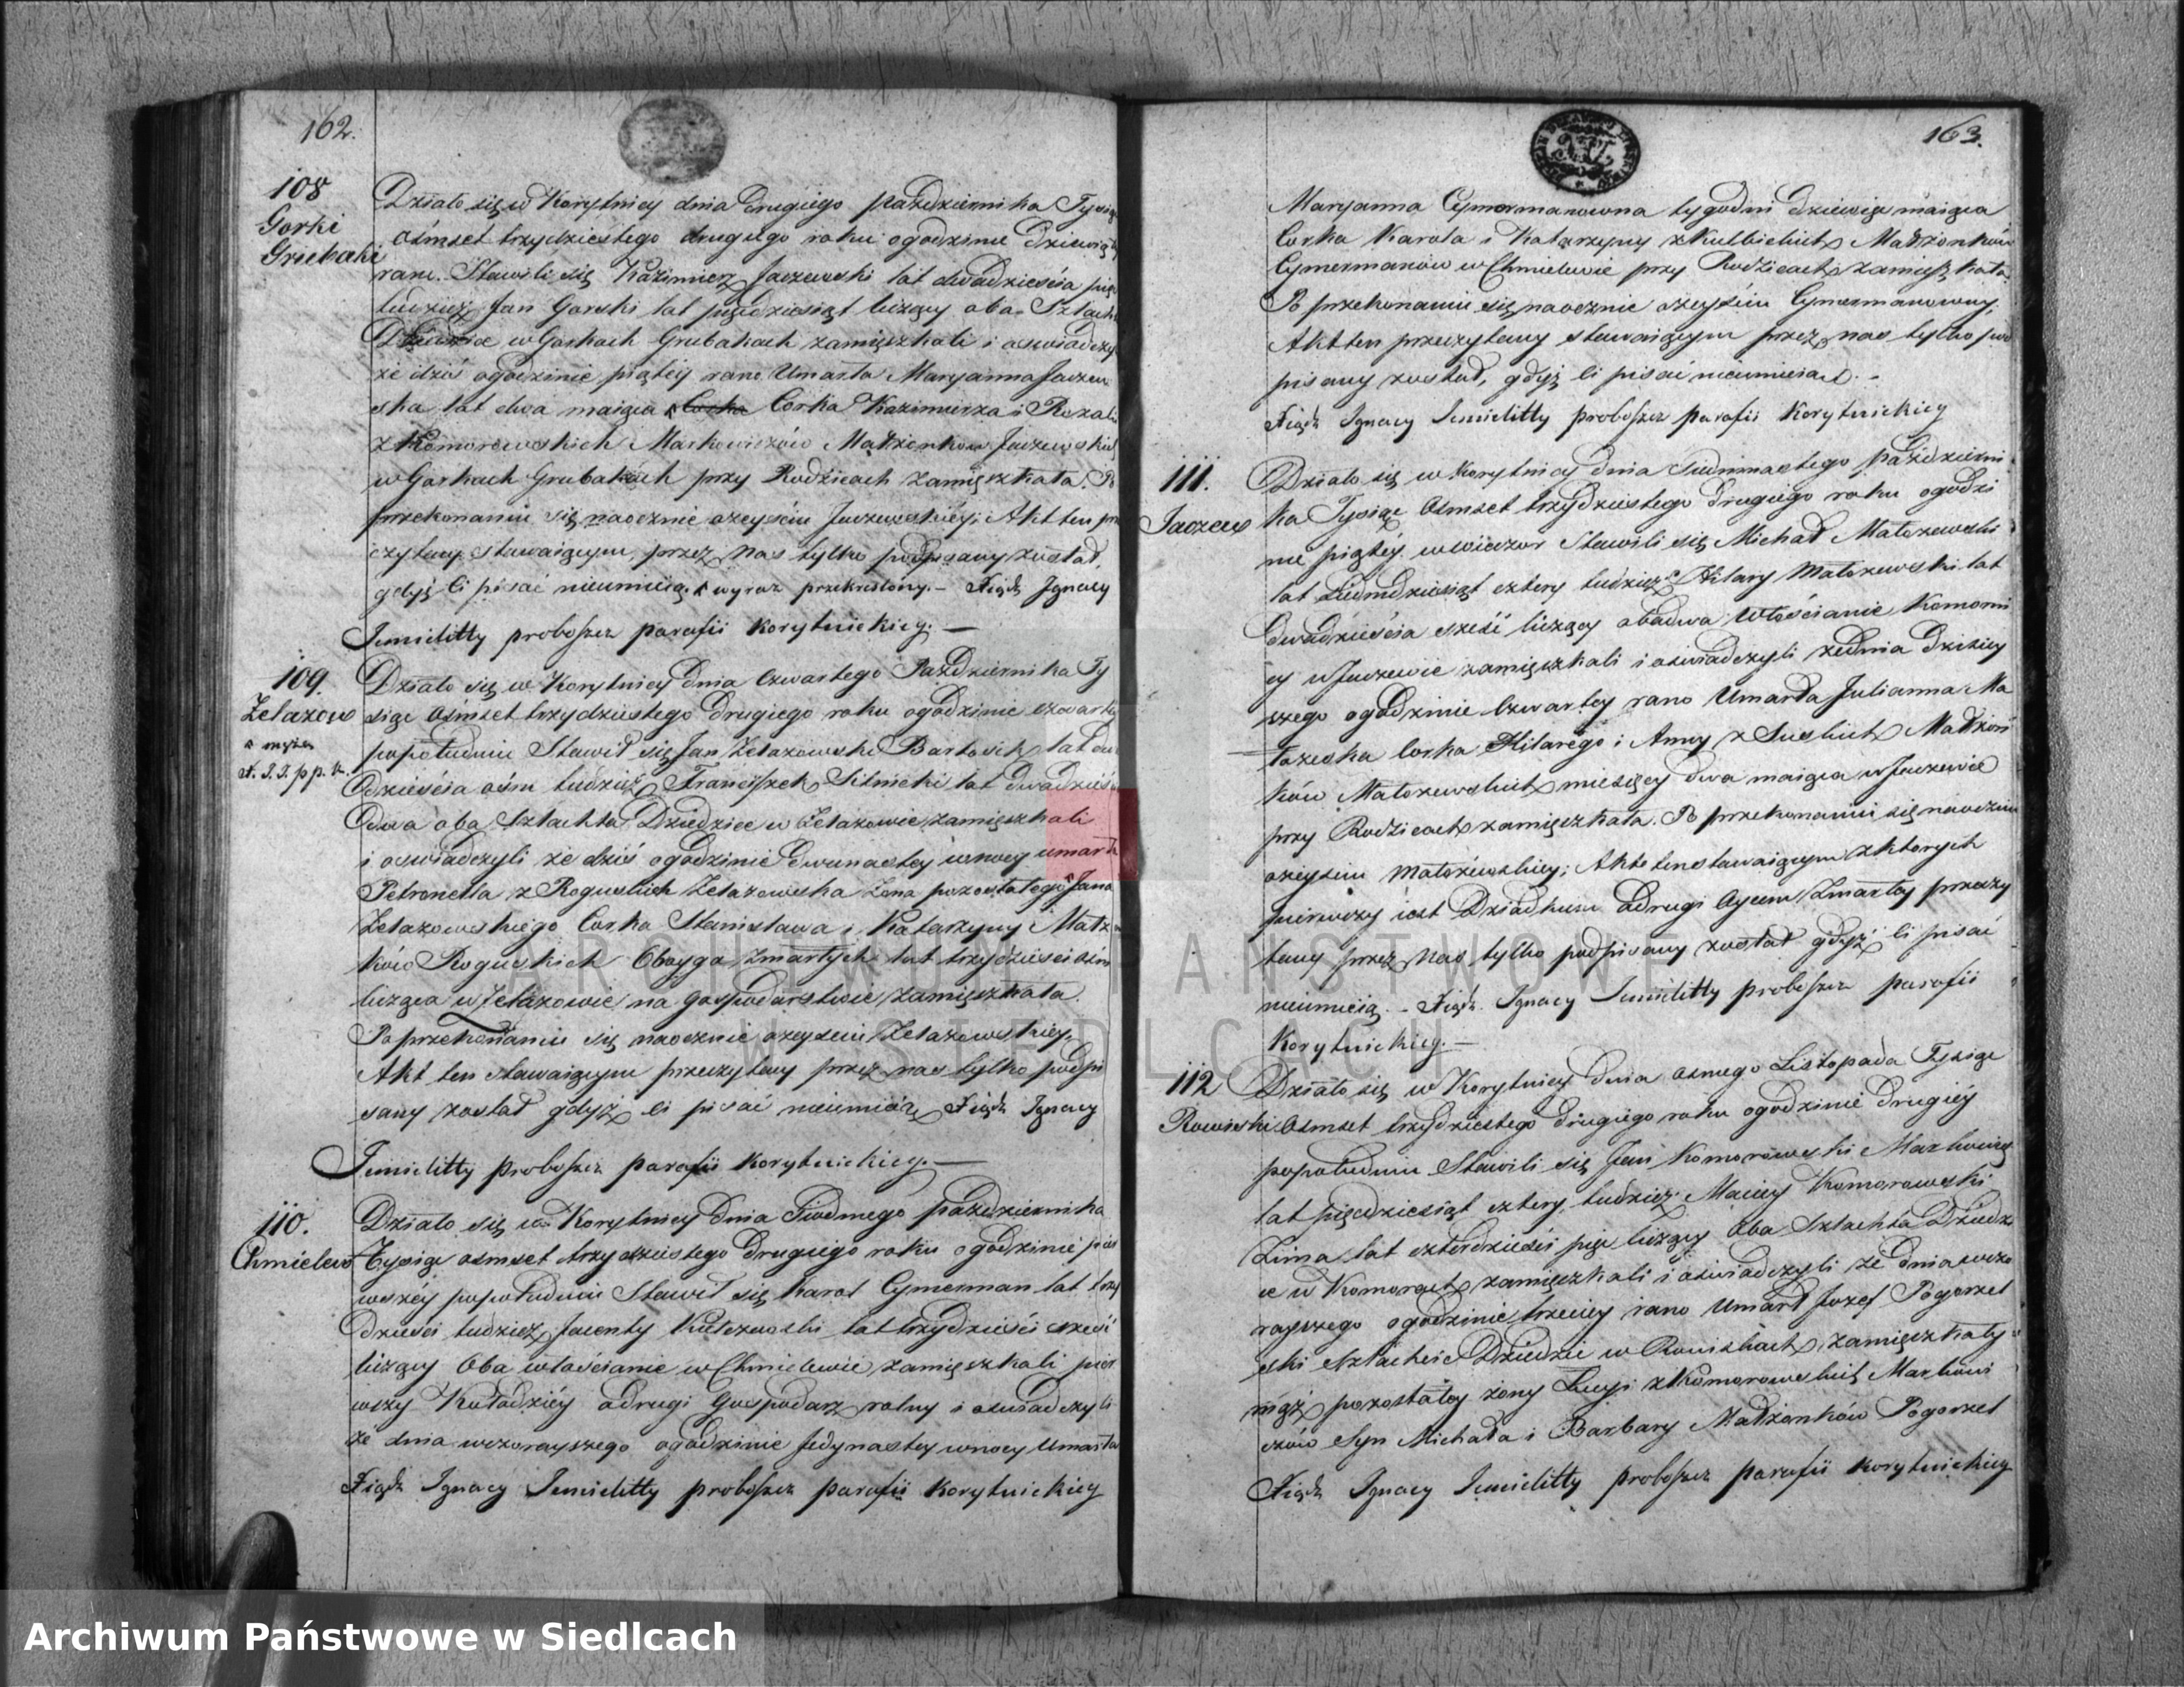 162.
108
Gorki
Grubaki
Działo się w Korytnicy dnia Drugiego Października Tysią
Ośmset trzydziestego drugiego roku ogodzinie Dziewiąty
rano. Stawili się Kazimierz Jaczewski lat dwadzieścia pięć
tudzież Jan Gorski lat pięćdziesiąt liczący oba Szlach
Dziedzice w Gorkach Grubakach zamięszkali i oświadczy
że dziś ogodzinie piątej rano Umarła Maryanna Jaczew
ska lat dwa maiąca Corka Corka Kazimierza i Rozali
z Komorowskich Markowiczów Małżonków Jaczewskich
w Gorkach Grubakach przy Rodzicach zamięszkała. Po
przekonaniu się naocznie ozeyściu Jaczewskiey; Akt ten prze
czytany stawaiącym, przez Nas tylko podpisany został,
gdyż ci pisać nieumieią. wyraz przekreślony. – Xiądz Ignacy
Jemielitty proboszcz parafii Korytnickiey. —
109.
Żelazow
męża
X. I. J. p p. K.
Działo się w Korytnicy dnia Czwartego Października Ty
siąc Ośmset trzydziestego Drugiego roku ogodzinie czwarty
popołudniu Stawił się Jan Żelazowski Bartosik lat dwa
dzieścia ośm tudzież Franciszek Sitnicki lat Dwadzieś
dwa oba Szlachta Dziedzice w Żelazowie zamięszkali
i oswiadczyli że dziś ogodzinie Dwunastey wnocy umarła
Petronella z Roguskich Żelazowska Żona pozostałego Jana
Żelazowskiego Corka Stanisława i Katarzyny Małż
ków Roguskich Oboyga Zmarłych lat trzydzieści ośm
licząca w Żelazowie na gospodarstwie zamięszkała.
Po przekonaniu się naocznie ozeyściu Żelazowskiey,
Akt ten stawaiącym przeczytany przez nas tylko podpi
sany został gdyż ci pisać nieumieią Xiądz Ignacy
Jemielitty proboszcz parafii Korytnickiey. —
110.
Chmielew
Działo się w Korytnicy Dnia Siódmego Października
Tysiąc ośmset trzydziestego Drugiego roku ogodzinie pier
wszéy popołudniu Stawił się Karol Cymerman lat trzy
dzieści tudzież Jacenty Kulczewski lat trzydzieści sześć
liczący Oba włościanie w Chmielewie zamięszkali pier
wszy Kołodziéy adrugi Gospodarz rolny i oświadczyli
że dnia wczorayszego ogodzinie Jedynastey wnocy Umarła
Xiądz Ignacy Jemielitty proboszcz parafii Korytnickiey
163.
Maryanna Cymermanowna tygodni dziewięć maiąca
Corka Karola i Katarzyny z Kulbickich Małżonków
Cymermanów w Chmielewie przy Rodzicach zamięszkała
Po przekonaniu się naocznie ozeyściu Cymermanowny,
Akt ten przeczytany stawaiącym przez nas tylko pod
pisany został, gdyż ci pisać nieumieią. –
Xiądz Ignacy Jemielitty proboszcz parafii Korytnickiey
111.
Jaczew
Działo się w Korytnicy Dnia Siedmnastego Październi
ka Tysiąc Ośmset trzydziestego Drugiego roku ogodzi
nie piątéy wwieczor Stawili się Michał Matorzewski
lat Siedmdziesiąt cztery tudzież Hilary Matorzewski lat
Dwadzieścia sześć liczący obadwa Włościanie Komorni
cy w Jaczewie zamięszkali i oświadczyli żednia dzisiey
szego ogodzinie Czwartey rano Umarła Julianna Ma
torzeska Corka Hilarego i Anny z Suskich Małżon
ków Matorzewskich miesięcy dwa maiąca w Jaczewie
przy Rodzicach zamięszkała. Po przekonaniu się naocznie
ozeyściu Matorzewskiey; Akt ten stawaiącym zktorych
pierwszy iest Dziadkiem adrugi Oycem Zmarłey przeczy
tany przez Nas tylko podpisany został gdyż ci pisać
nieumieią. – Xiądz Ignacy Jemielitty proboszcz parafii
Korytnickiey. —
112
Rowiski
Działo się w Korytnicy Dnia osmego Listopada Tysiąc
Ośmset trzydziestego Drugiego roku ogodzinie Drugiéy
popołudniu Stawili się Jan Komorowski Markowicz
lat pięćdziesiąt cztery tudzież Maciey Komorowski
Zima lat czterdzieści pięć liczący Oba Szlachta Dziedzi
ce w Komorach zamięszkali i oświadczyli że dnia wczo
rayszego ogodzinie trzeciey rano Umarł Jozef Pogorzel
ski Szlachcic Dziedzic w Rowiskach zamięszkały
mąż pozostałey żony Łucyi z Komorowskich Markowi
czów Syn Michała i Barbary Małżonków Pogorzel
Xiądz Ignacy Jemielitty proboszcz parafii Korytnickiey
ARCHIWUM PAŃSTWOWE
W SIEDLCACH
Archiwum Państwowe w Siedlcach